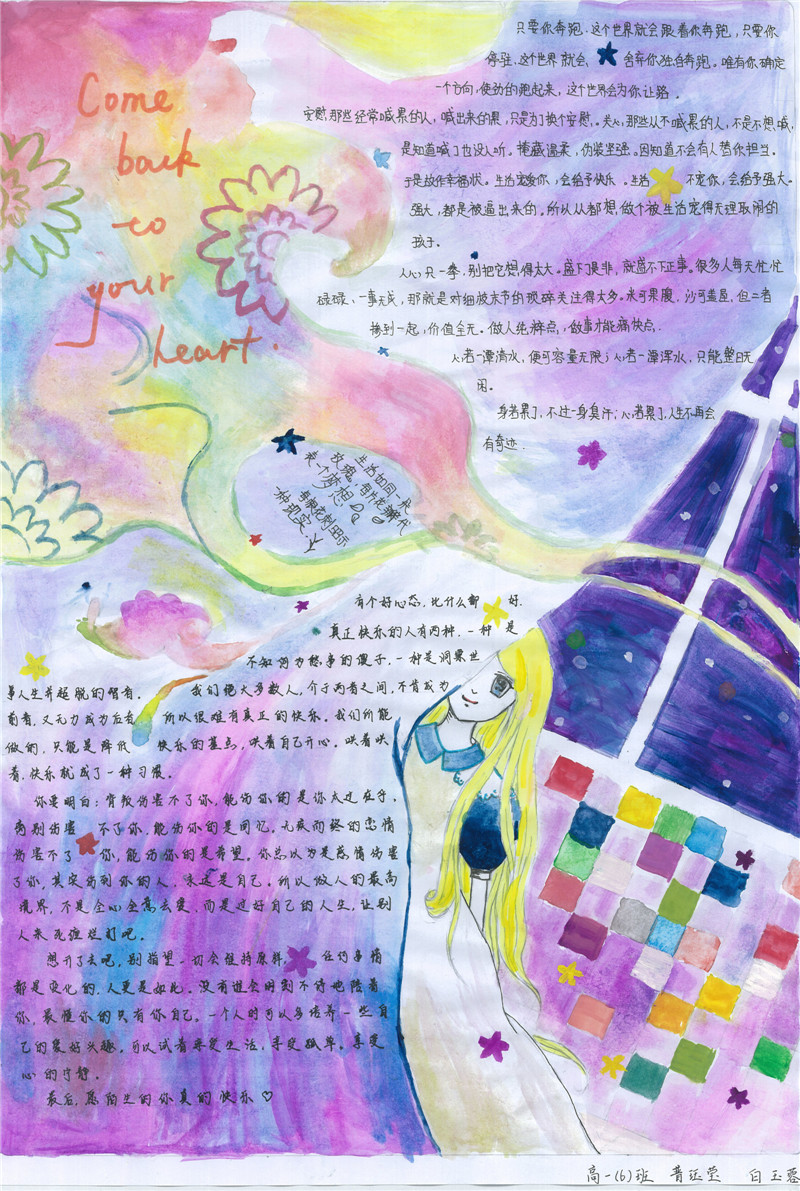 Come
back
to
your
heart.
只要你奔跑,这个世界就会跟着你奔跑,只要你
停驻,这个世界就会 舍弃你独自奔跑。唯有你确定
一个方向,使劲的跑起来,这个世界会为你让路。
安慰那些经常喊累的人,喊出来的累,只是为了换个安慰。关心那些从不喊累的人,不是不想喊,
是知道喊了也没人听。掩藏温柔,伪装坚强。因知道不会有人替你担当。
于是故作幸福状。生活宠爱你,会给予快乐。生活 不宠你,会给予强大。
强大,都是被逼出来的。所以从都想做个被生活宠得无理取闹的
孩子。
人心只一拳,别把它想得太大。盛下了是非,就盛不下正事。很多人每天忙忙
碌碌、一事无成,那就是对细枝末节的琐碎关注得太多。米可果腹,沙可盖屋,但二者
掺到一起,价值全无。做人纯粹点,做事才能痛快点.
心若一潭清水,便可容量无限;心若一潭浑水,只能整日无
闲。
身若累了,不过一身臭汗;心若累了,人生不再会
有奇迹.
生活如同一枝
玫瑰,每片花瓣代
表一个梦想
每根花刺昭示
一种现实
有个好心态,比什么都 好.
真正快乐的人有两种,一种 是
不知何为愁事的傻子,一种是洞累世
事人生并超脱的智者。 我们绝大多数人,介于两者之间,不肯成为
前者,又无力成为后者 所以很难有真正的快乐。我们所能
做的,只能是降低 快乐的基点,哄着自己开心。哄着哄
着,快乐就成了一种习惯。
你要明白:背叛伤害不了你,能伤你的是你太过在乎。
离别伤害 不了你,能伤你的是回忆。无疾而终的恋情
伤害不了 你,能伤你的是希望。你总以为是感情伤害
了你,其实伤到你的人,永远是自己。所以做人的最高
境界,不是全心全意去爱,而是过好自己的人生,让别
人来死缠烂打吧。
想开了去吧,别指望一切会维持原样, 任何事情
都是变化的,人更是如此。没有谁会时刻不停地陪着
你,最懂你的只有你自己。一个人时可以多培养一些自
己的喜好兴趣。可以试着来爱生活,享受孤单。享受
心的宁静。
最后,愿陌生的你真的快乐♡
高一(6)班 白玉蓉